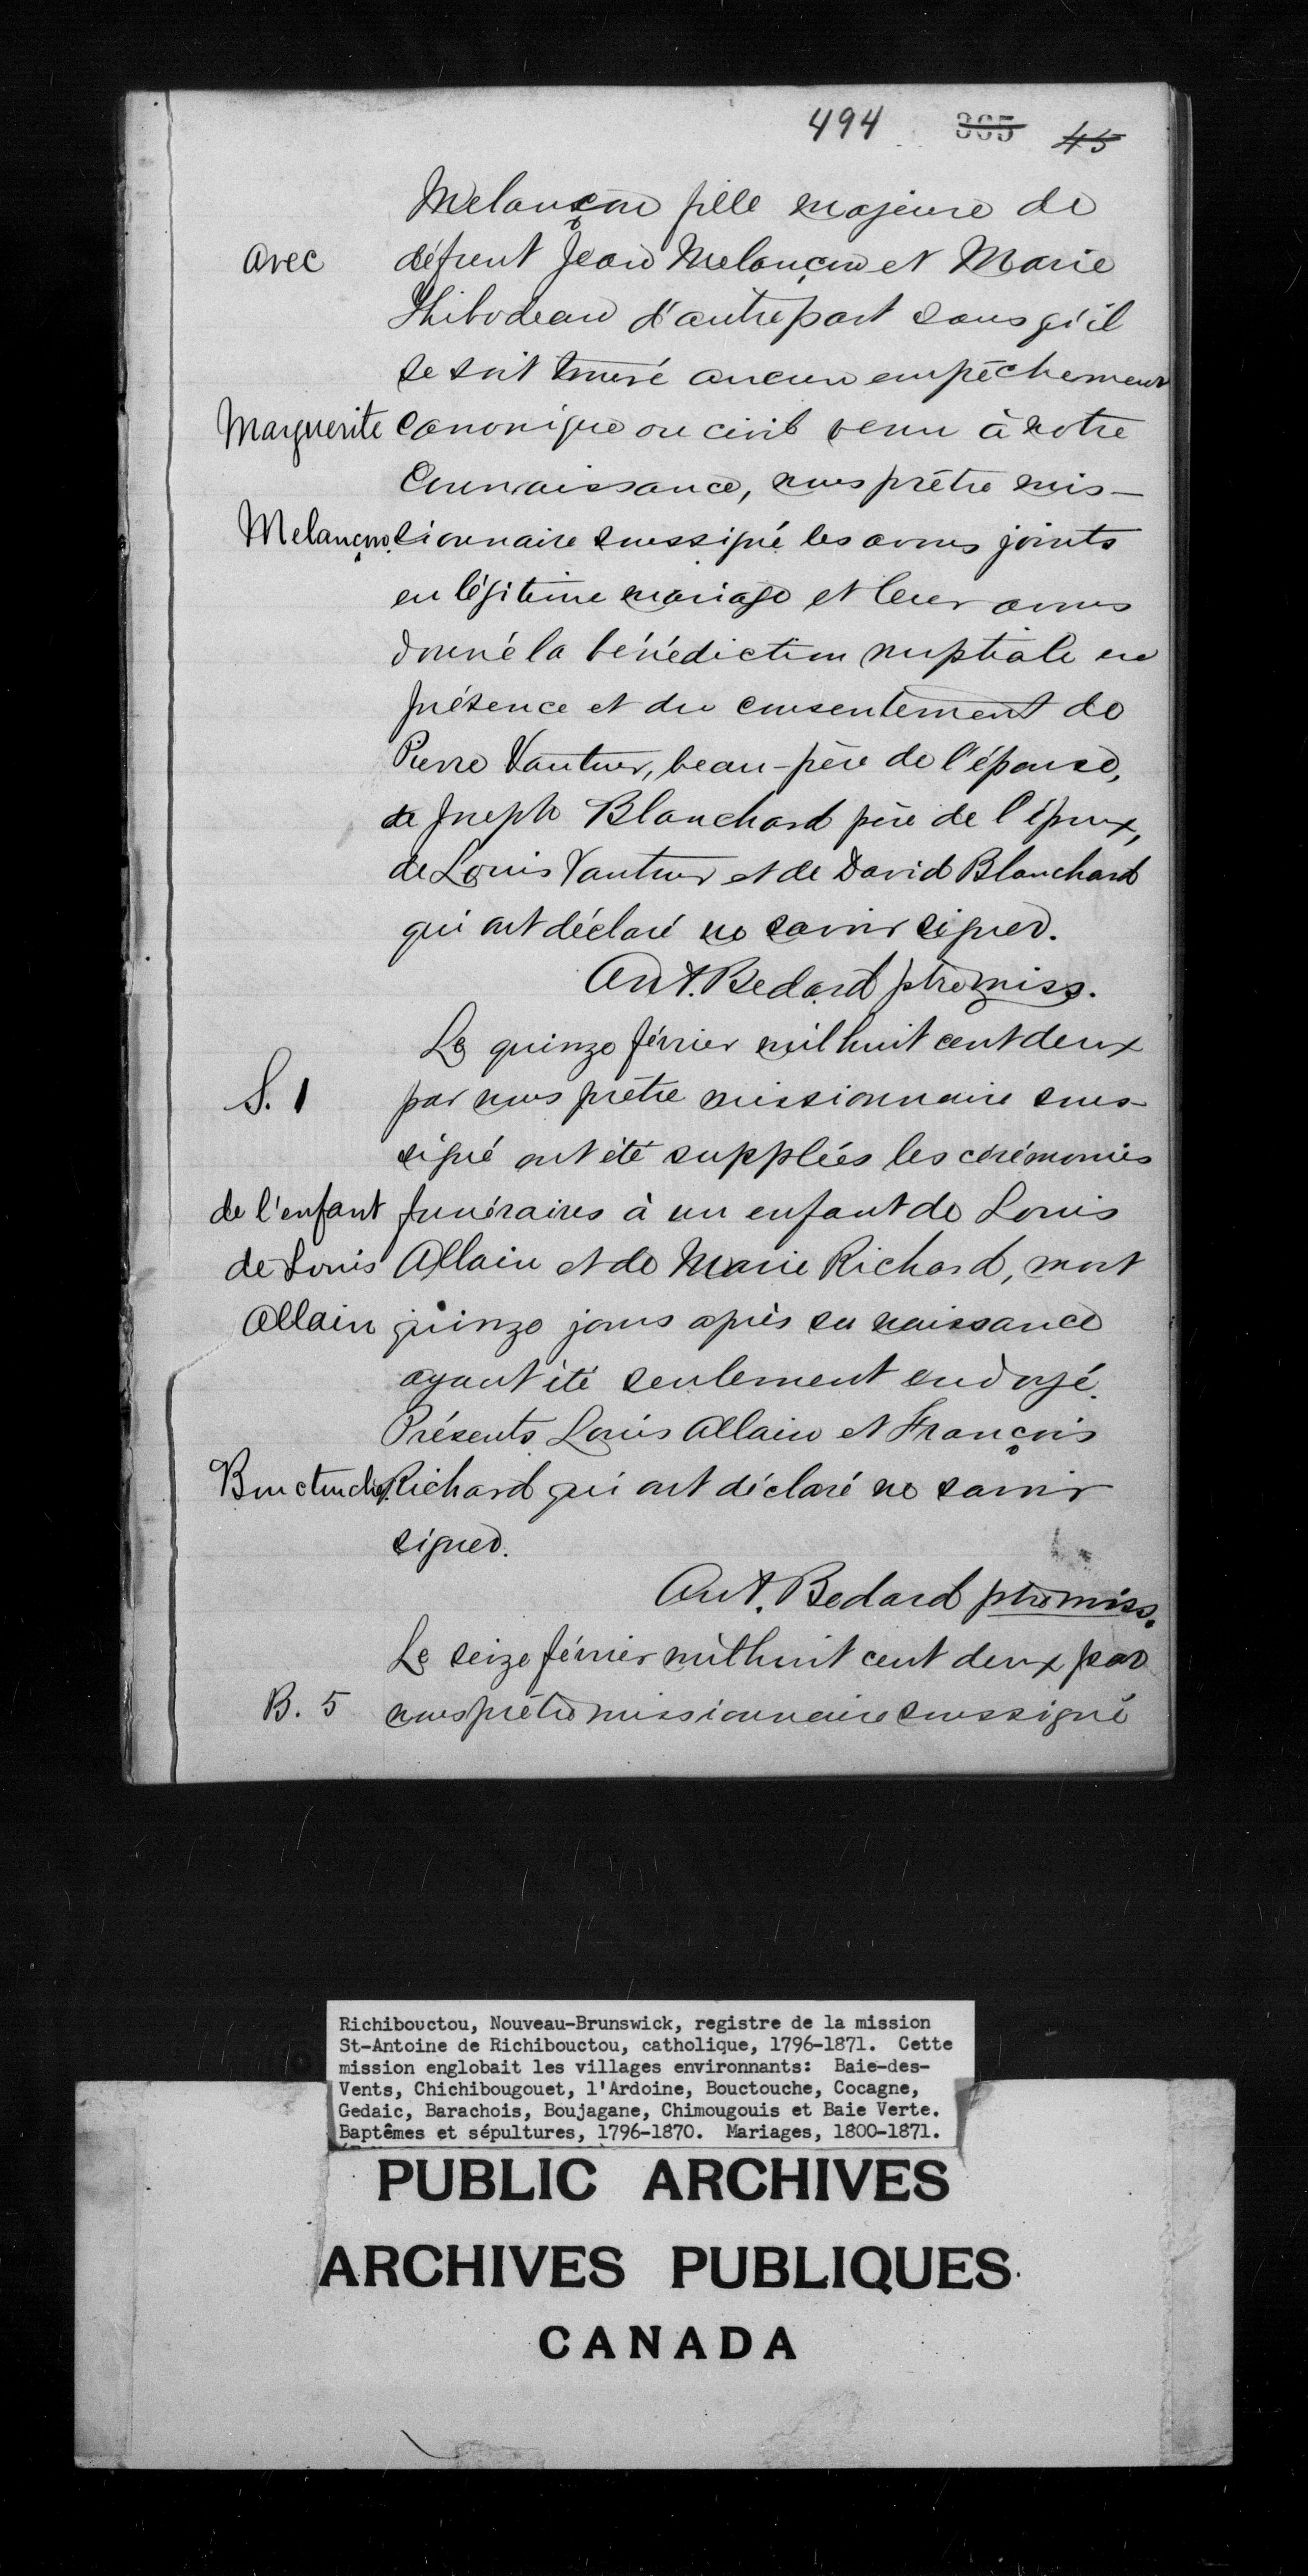 494 365 45
Melançon fille majeure de
avec défunt Jean Melançon et Marie
Thibodeau d'autre part sans qu'il
se soit trouvé aucun empêchement
Marguerite canonique ou civil venu à notre
Connaissance, nous prêtre mis-
Melançon. sionnaire soussigné les avons joints
en légitime mariage et leur avons
donné la bénédiction nuptiale en
présence et du consentement de
Pierre Vautour, beau-père de l'épouse,
de Joseph Blanchard père de l'époux,
de Louis Vautour et de David Blanchard
qui ont déclaré ne savoir signer.
Ant. Bedard ptre miss.
Le quinze février mil huit cent deux
S. 1 par nous prêtre missionnaire sous-
signé ont été suppléés les cérémonies
de l'enfant funéraires à un enfant de Louis
de Louis Allain et de Marie Richard, mort
Allain quinze jours après sa naissance
ayant été seulement ondoyé.
Présents Louis Allain et François
Bouctouche. Richard qui ont déclaré ne savoir
signer.
Ant. Bedard ptre miss.
Le seize février mil huit cent deux par
B. 5 nous prêtre missionnaire soussigné
Richibouctou, Nouveau-Brunswick, registre de la mission
St-Antoine de Richibouctou, catholique, 1796-1871. Cette
mission englobait les villages environnants: Baie-des-
Vents, Chichibougouet, l'Ardoine, Bouctouche, Cocagne,
Gedaic, Barachois, Boujagane, Chimougouis et Baie Verte.
Baptêmes et sépultures, 1796-1870. Mariages, 1800-1871.
PUBLIC ARCHIVES
ARCHIVES PUBLIQUES
CANADA